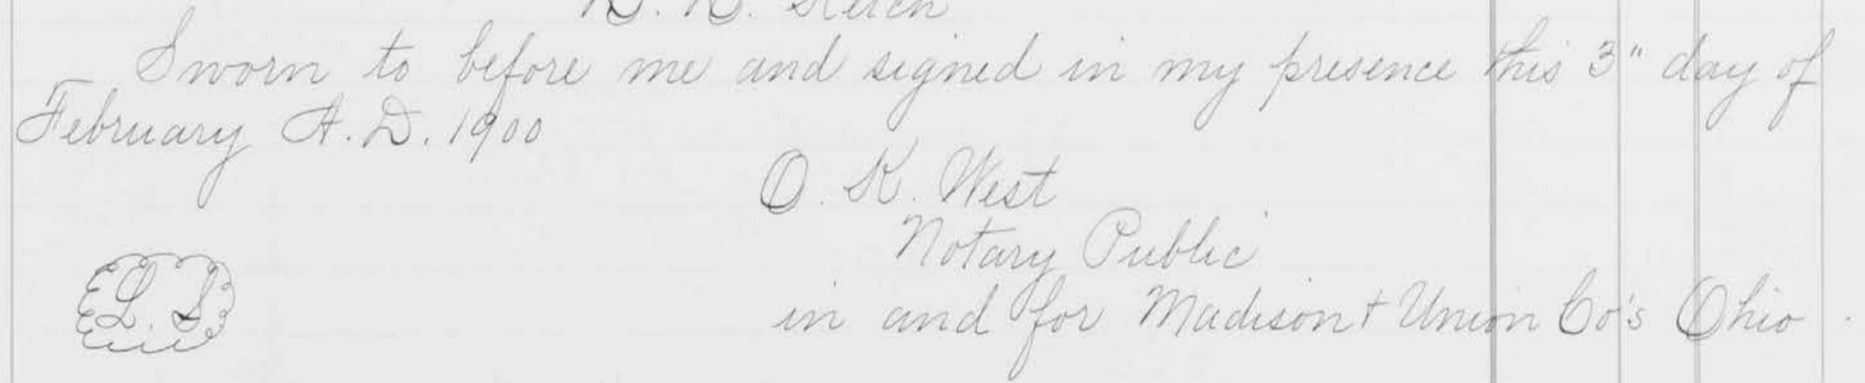 Sworn to before me and signed in my presence this 3" day of
February A.D. 1900
O. K. West
Notary Public
L. S
in and for Madison + Union Co's Ohio.